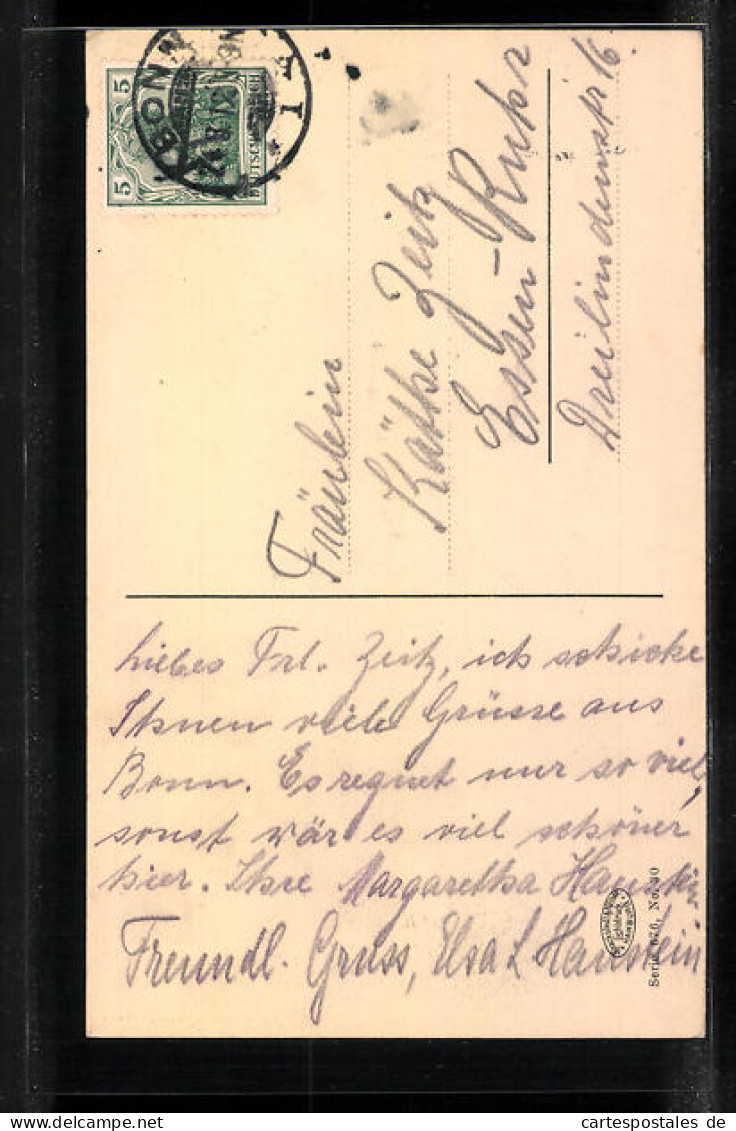 5
5
BONN
31.8.
DEUTSCHES REICH
Fräulein
Käthe Zeitz
Essen-Ruhr
Dreilindenstr 16.
Liebes Frl. Zeitz, ich schicke
Ihnen viele Grüsse aus
Bonn. Es regnet nur so viel,
sonst wär es viel schöner
hier. Ihre Margaretha Haustein
Freundl. Gruss, Elsa L Haustein
Serie 676, No. 30
cartespostales de